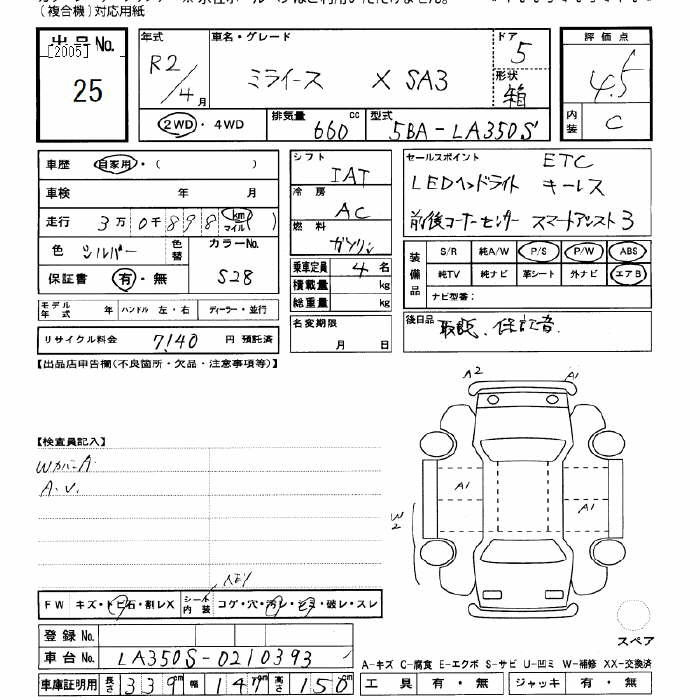 (複合機)対応用紙
出品No.
[2005]
25
年式 R2/4月
車名・グレード ミライース X SA3
ドア 5
形状 箱
評価点 4.5
内装 C
2WD・4WD
排気量 660 cc
型式 5BA-LA350S
車歴 自家用・( )
車検 年 月
走行 3万0千898 km (マイル)
色 シルバー 色替 カラーNo. S28
保証書 有・無
モデル年式 年 ハンドル 左・右 ディーラー・並行
リサイクル料金 7,140 円 預託済
シフト IAT
冷房 AC
燃料 ガソリン
乗車定員 4名
積載量 kg
総重量 kg
名変期限 月 日
セールスポイント ETC
LEDヘッドライト キーレス
前後コーナーセンサー スマートアシスト3
装備品 S/R 純A/W P/S P/W ABS
純TV 純ナビ 革シート 外ナビ エアB
ナビ型番:
後日品 取説、保証書.
【出品店申告欄(不良箇所・欠品・注意事項等)】
A2 A1
【検査員記入】
WカバーA
A.V.
A1 A1
W2
FW キズ・トビ石・割レX シート内装 コゲ・穴・汚レ・シミ・破レ・スレ
登録No.
車台No. LA350S-0210393
車庫証明用 長さ 339m 幅 147m 高さ 150m
スペア
A-キズ C-腐食 E-エクボ S-サビ U-凹ミ W-補修 XX-交換済
工具 有・無 ジャッキ 有・無